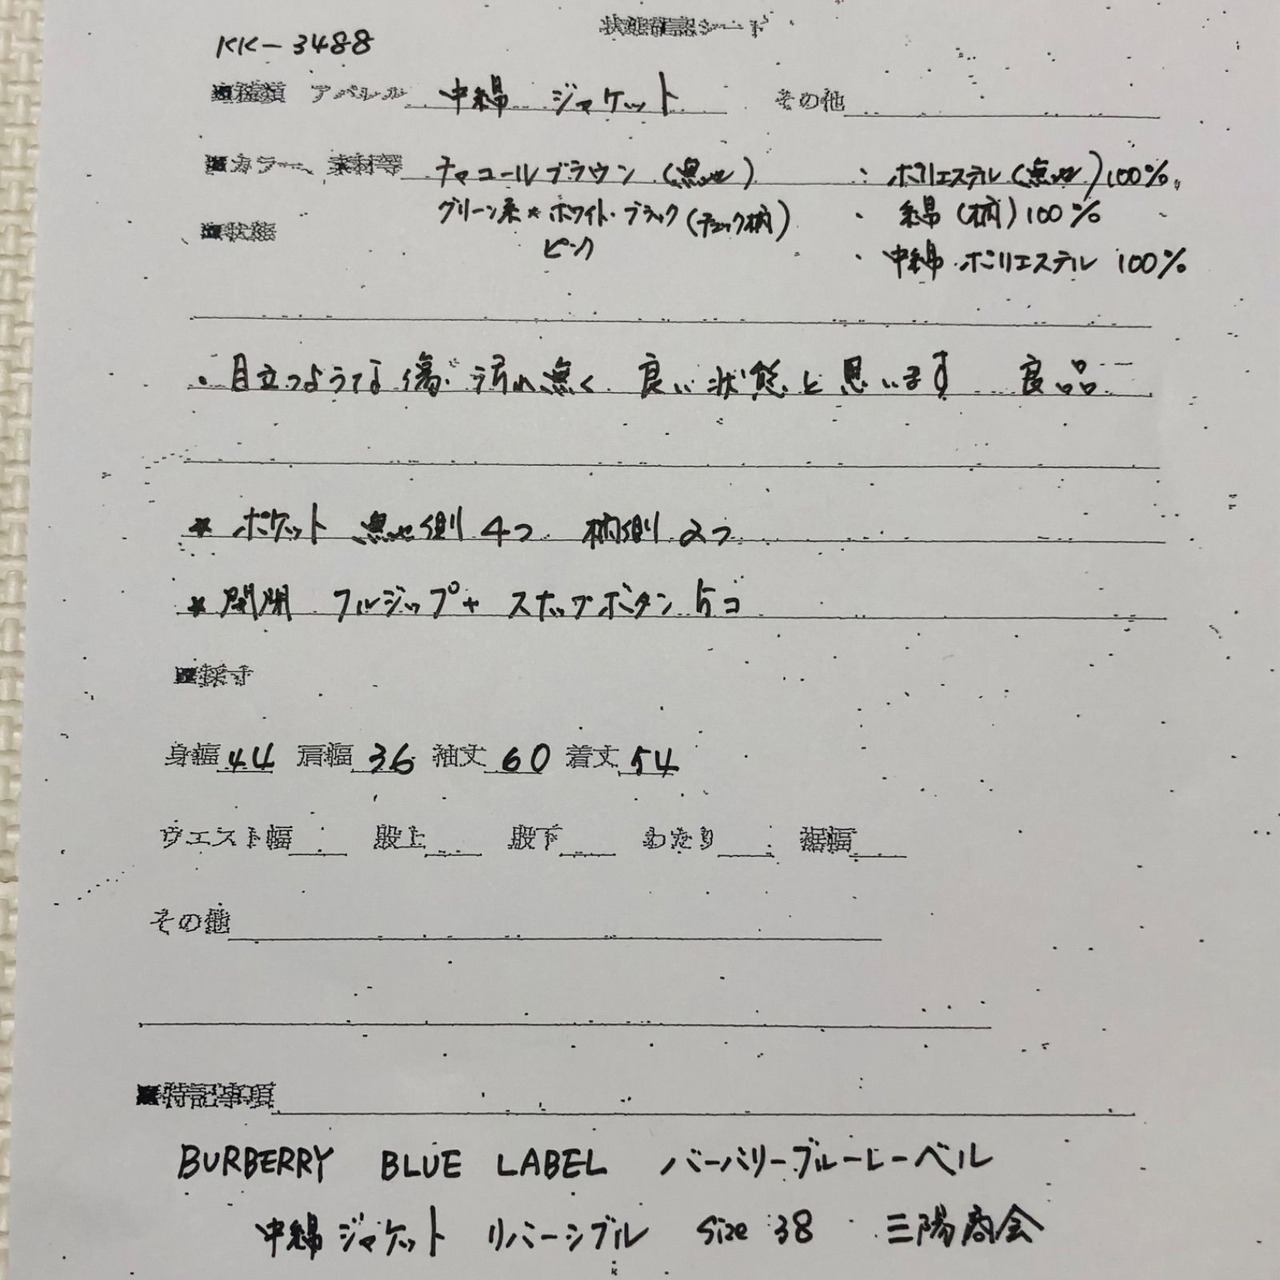 状態確認シート
KK-3488
■種類 アパレル 中綿 ジャケット その他
■カラー、素材等 チャコールブラウン (無地) : ポリエステル (無地) 100%
グリーン系*ホワイト・ブラック (チェック柄) ・ 綿 (柄) 100%
■状態 ピンク ・ 中綿 ポリエステル 100%
・目立つような傷、汚れ無く 良い状態と思います 良品
* ポケット 無地側 4つ 柄側 2つ
* 開閉 フルジップ+ スナップボタン 5コ
■採寸
身幅 44 肩幅 36 袖丈 60 着丈 54
ウエスト幅 股上 股下 わたり 裾幅
その他
■特記事項
BURBERRY BLUE LABEL バーバリーブルーレーベル
中綿ジャケット リバーシブル Size 38 三陽商会